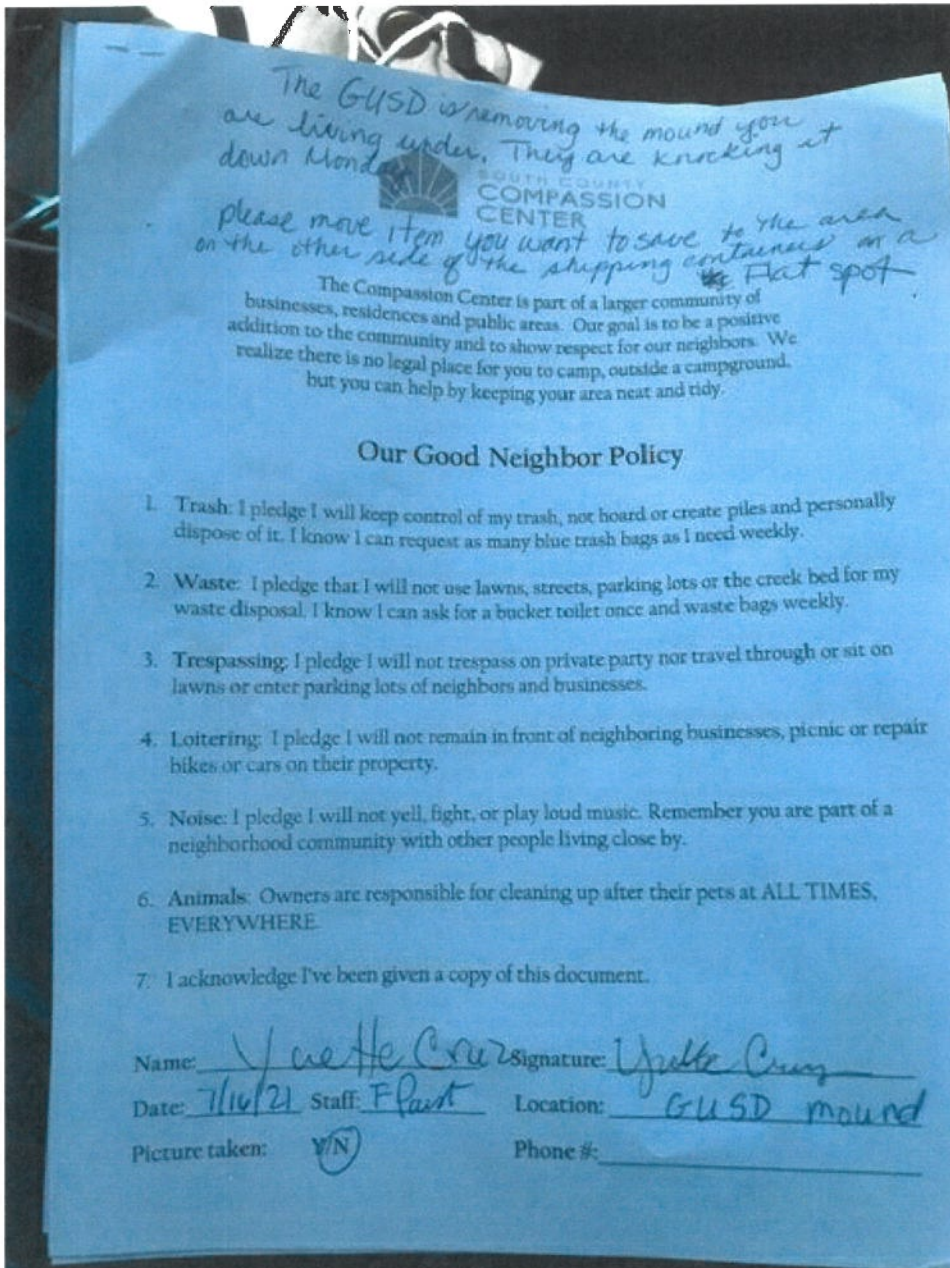 The GUSD is removing the mound you
are living under. They are knocking it
down Monday
SOUTH COUNTY
COMPASSION
CENTER
please move item you want to save to the area
on the other side of the shipping containers in a
Flat spot.
The Compassion Center is part of a larger community of
businesses, residences and public areas. Our goal is to be a positive
addition to the community and to show respect for our neighbors. We
realize there is no legal place for you to camp, outside a campground,
but you can help by keeping your area neat and tidy.
Our Good Neighbor Policy
1. Trash: I pledge I will keep control of my trash, not hoard or create piles and personally
dispose of it. I know I can request as many blue trash bags as I need weekly.
2. Waste: I pledge that I will not use lawns, streets, parking lots or the creek bed for my
waste disposal. I know I can ask for a bucket toilet once and waste bags weekly.
3. Trespassing: I pledge I will not trespass on private party nor travel through or sit on
lawns or enter parking lots of neighbors and businesses.
4. Loitering: I pledge I will not remain in front of neighboring businesses, picnic or repair
bikes or cars on their property.
5. Noise: I pledge I will not yell, fight, or play loud music. Remember you are part of a
neighborhood community with other people living close by.
6. Animals: Owners are responsible for cleaning up after their pets at ALL TIMES,
EVERYWHERE.
7. I acknowledge I've been given a copy of this document.
Name: Yvette Cruz Signature: Yvette Cruz
Date: 7/16/21 Staff: Location: GUSD mound
Picture taken: Y/N Phone #: